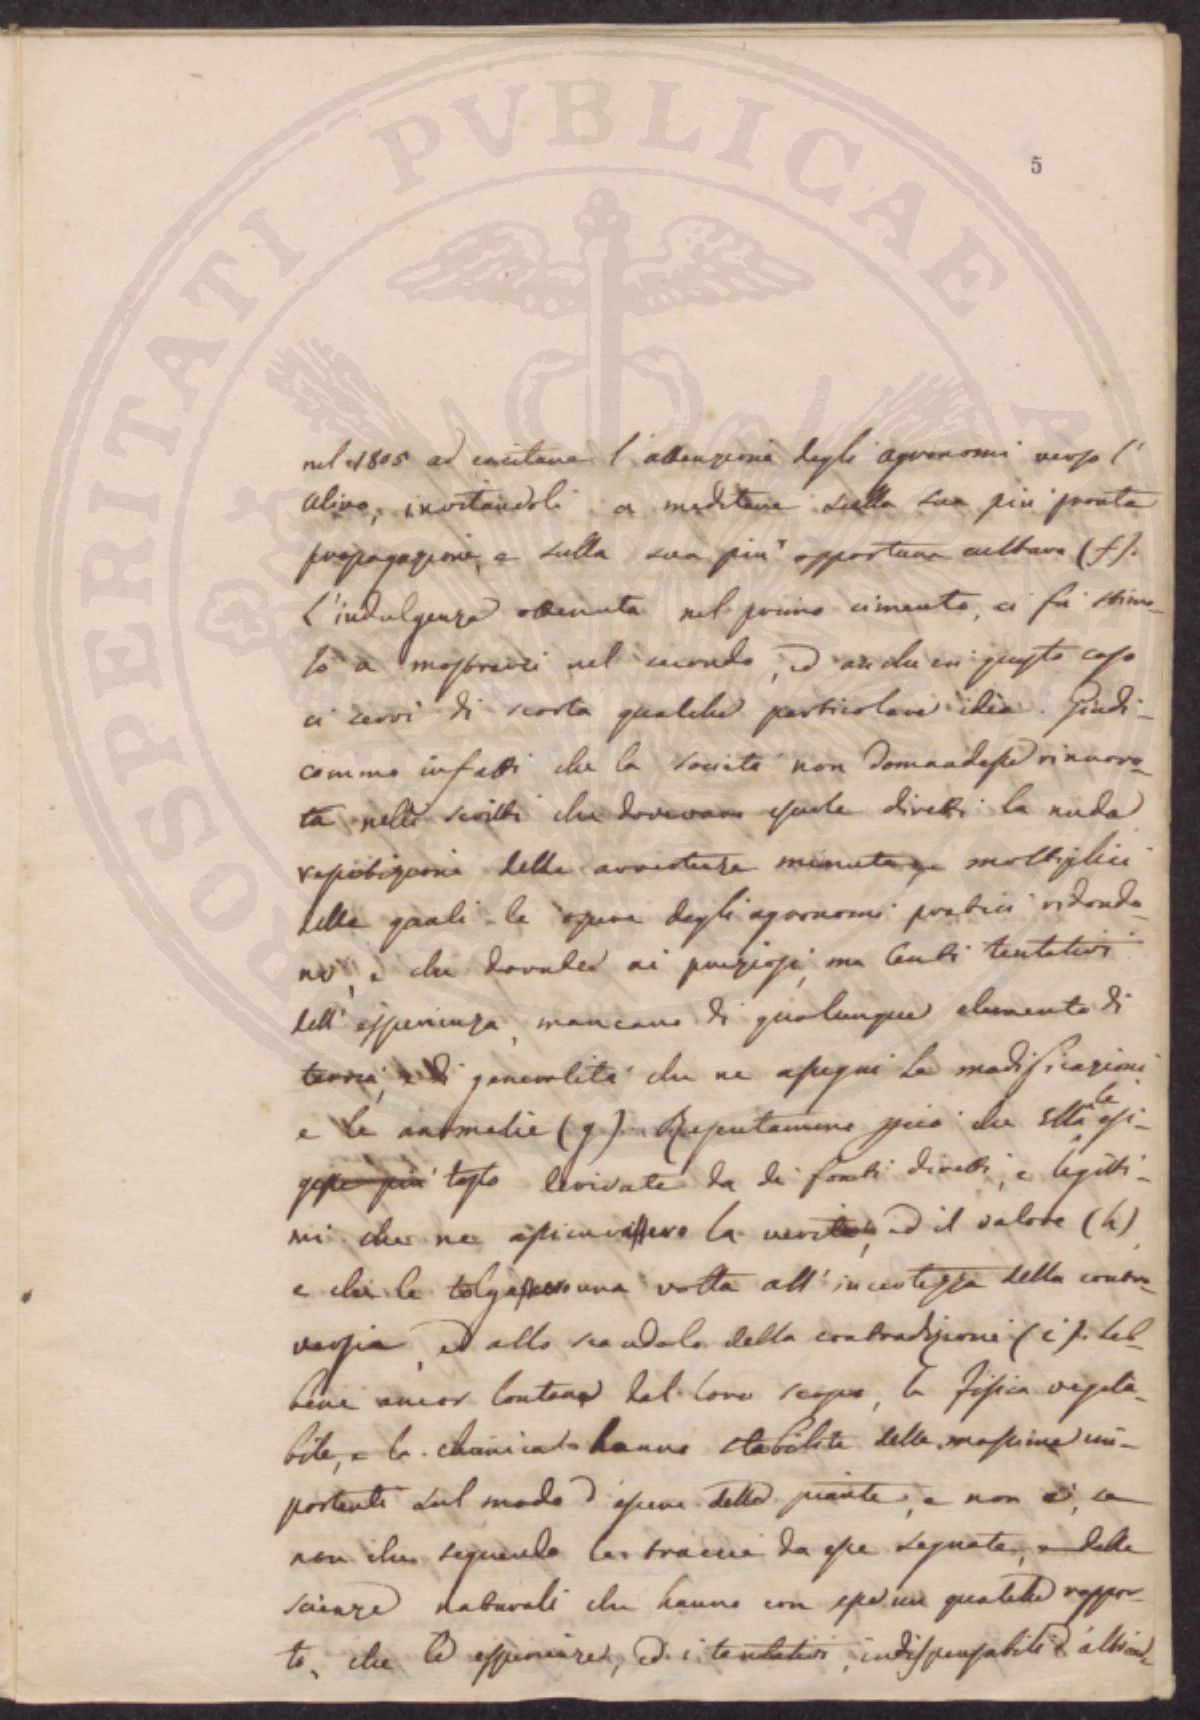 PROSPERITATI PUBLICAE A
5
nel 1805 ad eccitare l'attenzione degli agronomi verso l'
Ulivo, invitandoli a meditare sulla sua più pronta
propagazione, e sulla sua più opportuna cultura (f).
L'indulgenza ottenuta nel primo cimento, ci fu stimo-
lo a mostrarci nel secondo, ed anche in questo caso
ci servì di scorta qualche particolare idea. Giudi-
cammo infatti che la società non domandasse rinnova-
ta nelli scritti che dovevano esserle diretti la nuda
repetizione delle avvertenze minute, e moltiplici
delle quali le opere degli agronomi pratici ridonda-
no, e che dovute ai preziosi, ma lenti tentativi
dell'esperienza, mancano di qualunque elemento di
teoria, e di generalità che ne assegni le modificazioni
e le anomalie (g). Reputammo però che Ella le esi-
gesse più tosto derivate da de fonti diretti, e legitti-
mi che ne assicurassero la verità, ed il valore (h),
e che le togliessero una volta all'incertezza della contro-
versia, ed allo scandalo della contradizione (i). Seb-
bene ancor lontane dal loro scopo, la Fisica vegeta-
bile, e la chimica hanno stabilite delle massime im-
portanti sul modo d'essere delle piante, e non è, se
non che seguendo le traccie da esse segnate, e delle
scienze naturali che hanno con esse un qualche rappor-
to, che le esperienze, ed i tentativi, indispensabili d'altrond-